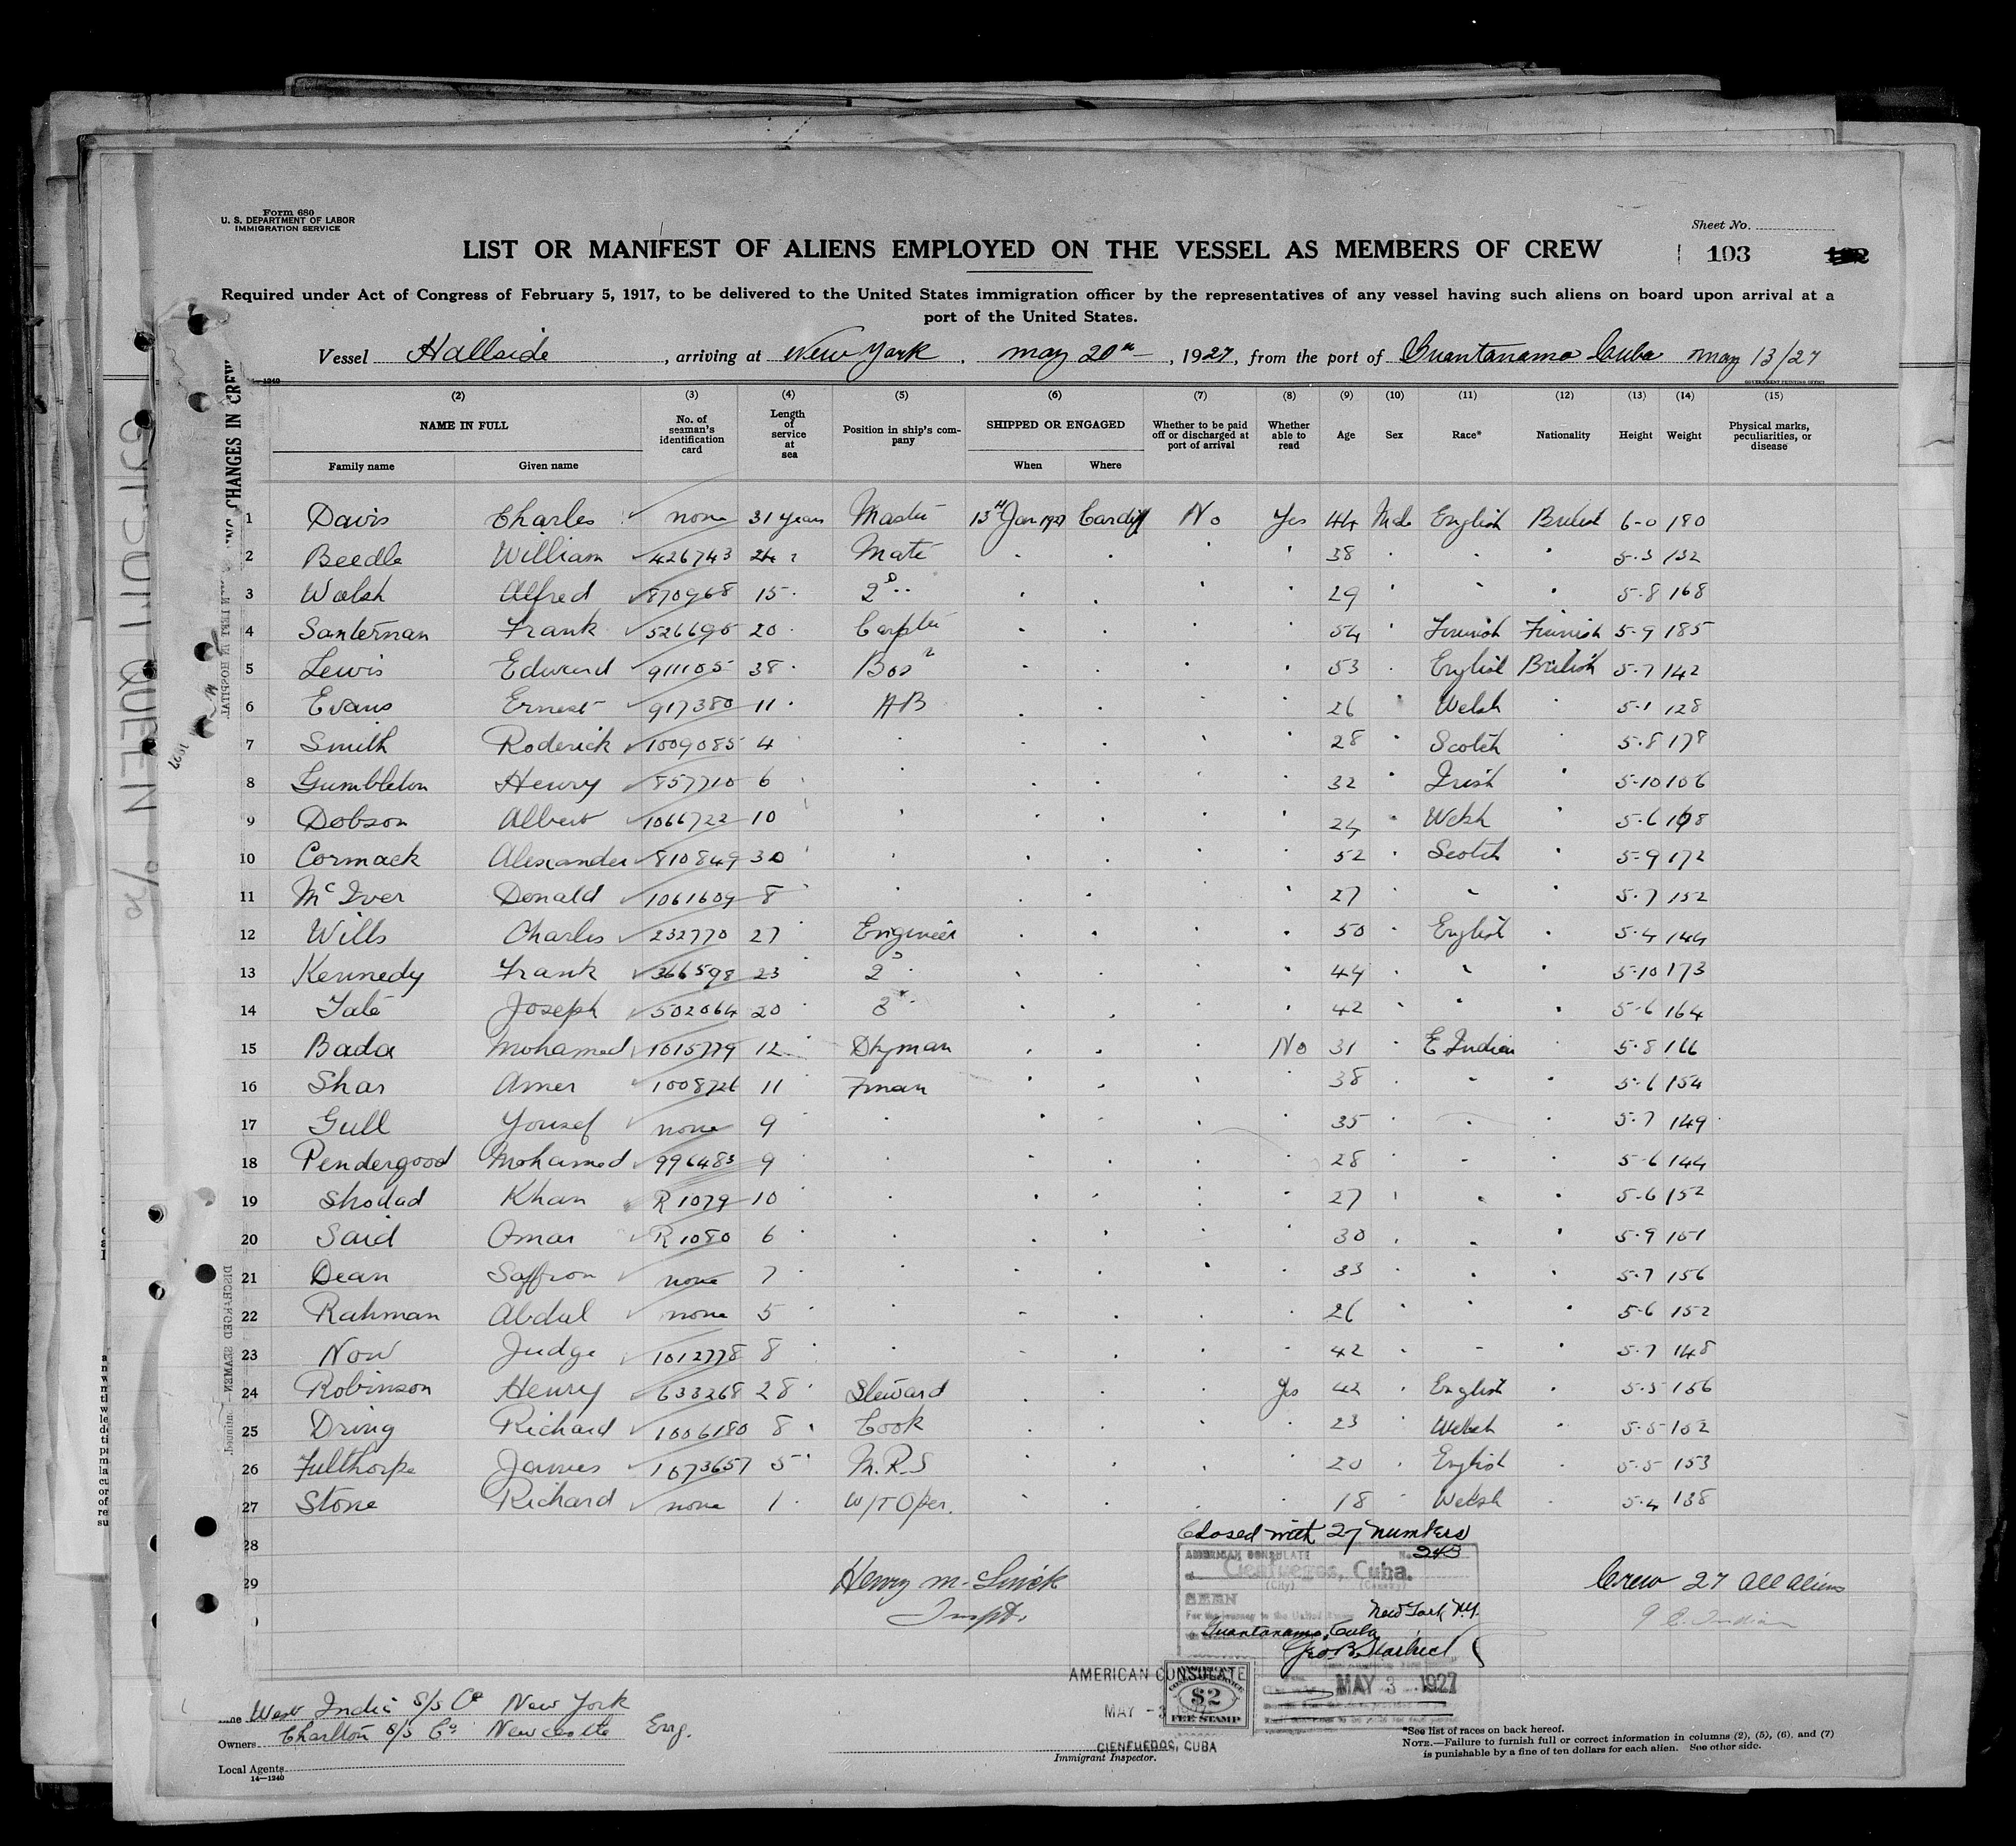 Form 680
U. S. DEPARTMENT OF LABOR
IMMIGRATION SERVICE
Sheet No.
103
LIST OR MANIFEST OF ALIENS EMPLOYED ON THE VESSEL AS MEMBERS OF CREW
Required under Act of Congress of February 5, 1917, to be delivered to the United States immigration officer by the representatives of any vessel having such aliens on board upon arrival at a
port of the United States.
Vessel Hallside, arriving at New York, May 20th, 1927, from the port of Guantanamo Cuba May 13/27
(2) (3) (4) (5) (6) (7) (8) (9) (10) (11) (12) (13) (14) (15)
NAME IN FULL No. of seaman's identification card Length of service at sea Position in ship's company SHIPPED OR ENGAGED Whether to be paid off or discharged at port of arrival Whether able to read Age Sex Race* Nationality Height Weight Physical marks, peculiarities, or disease
Family name Given name When Where
1 Davis Charles none 31 years Master 13th Jan 1927 Cardiff No Yes 44 Male English British 6-0 180
2 Beedle William 426743 24 Mate 38 5-3 132
3 Walsh Alfred 870968 15 2D 29 5-8 168
4 Santernan Frank 526695 20 Carpter 54 Finnish Finnish 5-9 185
5 Lewis Edward 911105 38 Bosn 53 English British 5-7 142
6 Evans Ernest 917380 11 AB 26 Welsh 5-1 128
7 Smith Roderick 1009085 4 28 Scotch 5-8 178
8 Gumbleton Henry 857710 6 32 Irish 5-10 106
9 Dobson Albert 1066722 10 24 Welsh 5-6
10 Cormack Alexander 810849 30 52 Scotch 5-9 172
11 McIver Donald 1061609 8 27 5-7 152
12 Wills Charles 232770 27 Engineer 50 English 5-4 144
13 Kennedy Frank 366598 23 2D 44 5-10 173
14 Tate Joseph 502064 20 3 42 5-6 164
15 Bada Mohamed 1015779 12 Dkyman No 31 E Indian 5-8 166
16 Shar Amer 1008726 11 Fman 38 5-6 154
17 Gull Yousef none 9 35 5-7 149
18 Pendergood Mohamed 996483 9 28 5-6 144
19 Shodad Khan R 1079 10 27 5-6 152
20 Said Omar R 1080 6 30 5-9 151
21 Dean Saffron none 7 33 5-7 156
22 Rahman Abdul none 5 26 5-6 152
23 Now Judge 1012778 8 42 5-7 148
24 Robinson Henry 633268 28 Steward Yes 42 English 5-5 156
25 Dring Richard 1006180 8 Cook 23 Welsh 5-5 152
26 Fulthorpe James 1073657 5 M.R.S 20 English 5-5 153
27 Stone Richard none 1 W/T Oper. 18 Welsh 5-4 138
28
29
Closed with 27 numbers
AMERICAN CONSULATE No. 243
Cienfuegos, Cuba.
(City) (Country)
SEEN
For the journey to the United States
New York N.Y.
Guantanamo, Cuba
MAY 3 1927
Henry M.
Inspt.
Crew 27 All Aliens
9 E. Indian
AMERICAN CONSULATE
MAY - 3
CIENFUEGOS, CUBA
$2
FEE STAMP
West India S/S Co New York
Owners Charlton S/S Co Newcastle Eng.
Local Agents
14—1240
Immigrant Inspector.
*See list of races on back hereof.
NOTE.—Failure to furnish full or correct information in columns (2), (5), (6), and (7)
is punishable by a fine of ten dollars for each alien. See other side.
CHANGES IN CREW
DISCHARGED SEAMEN
QUEEN